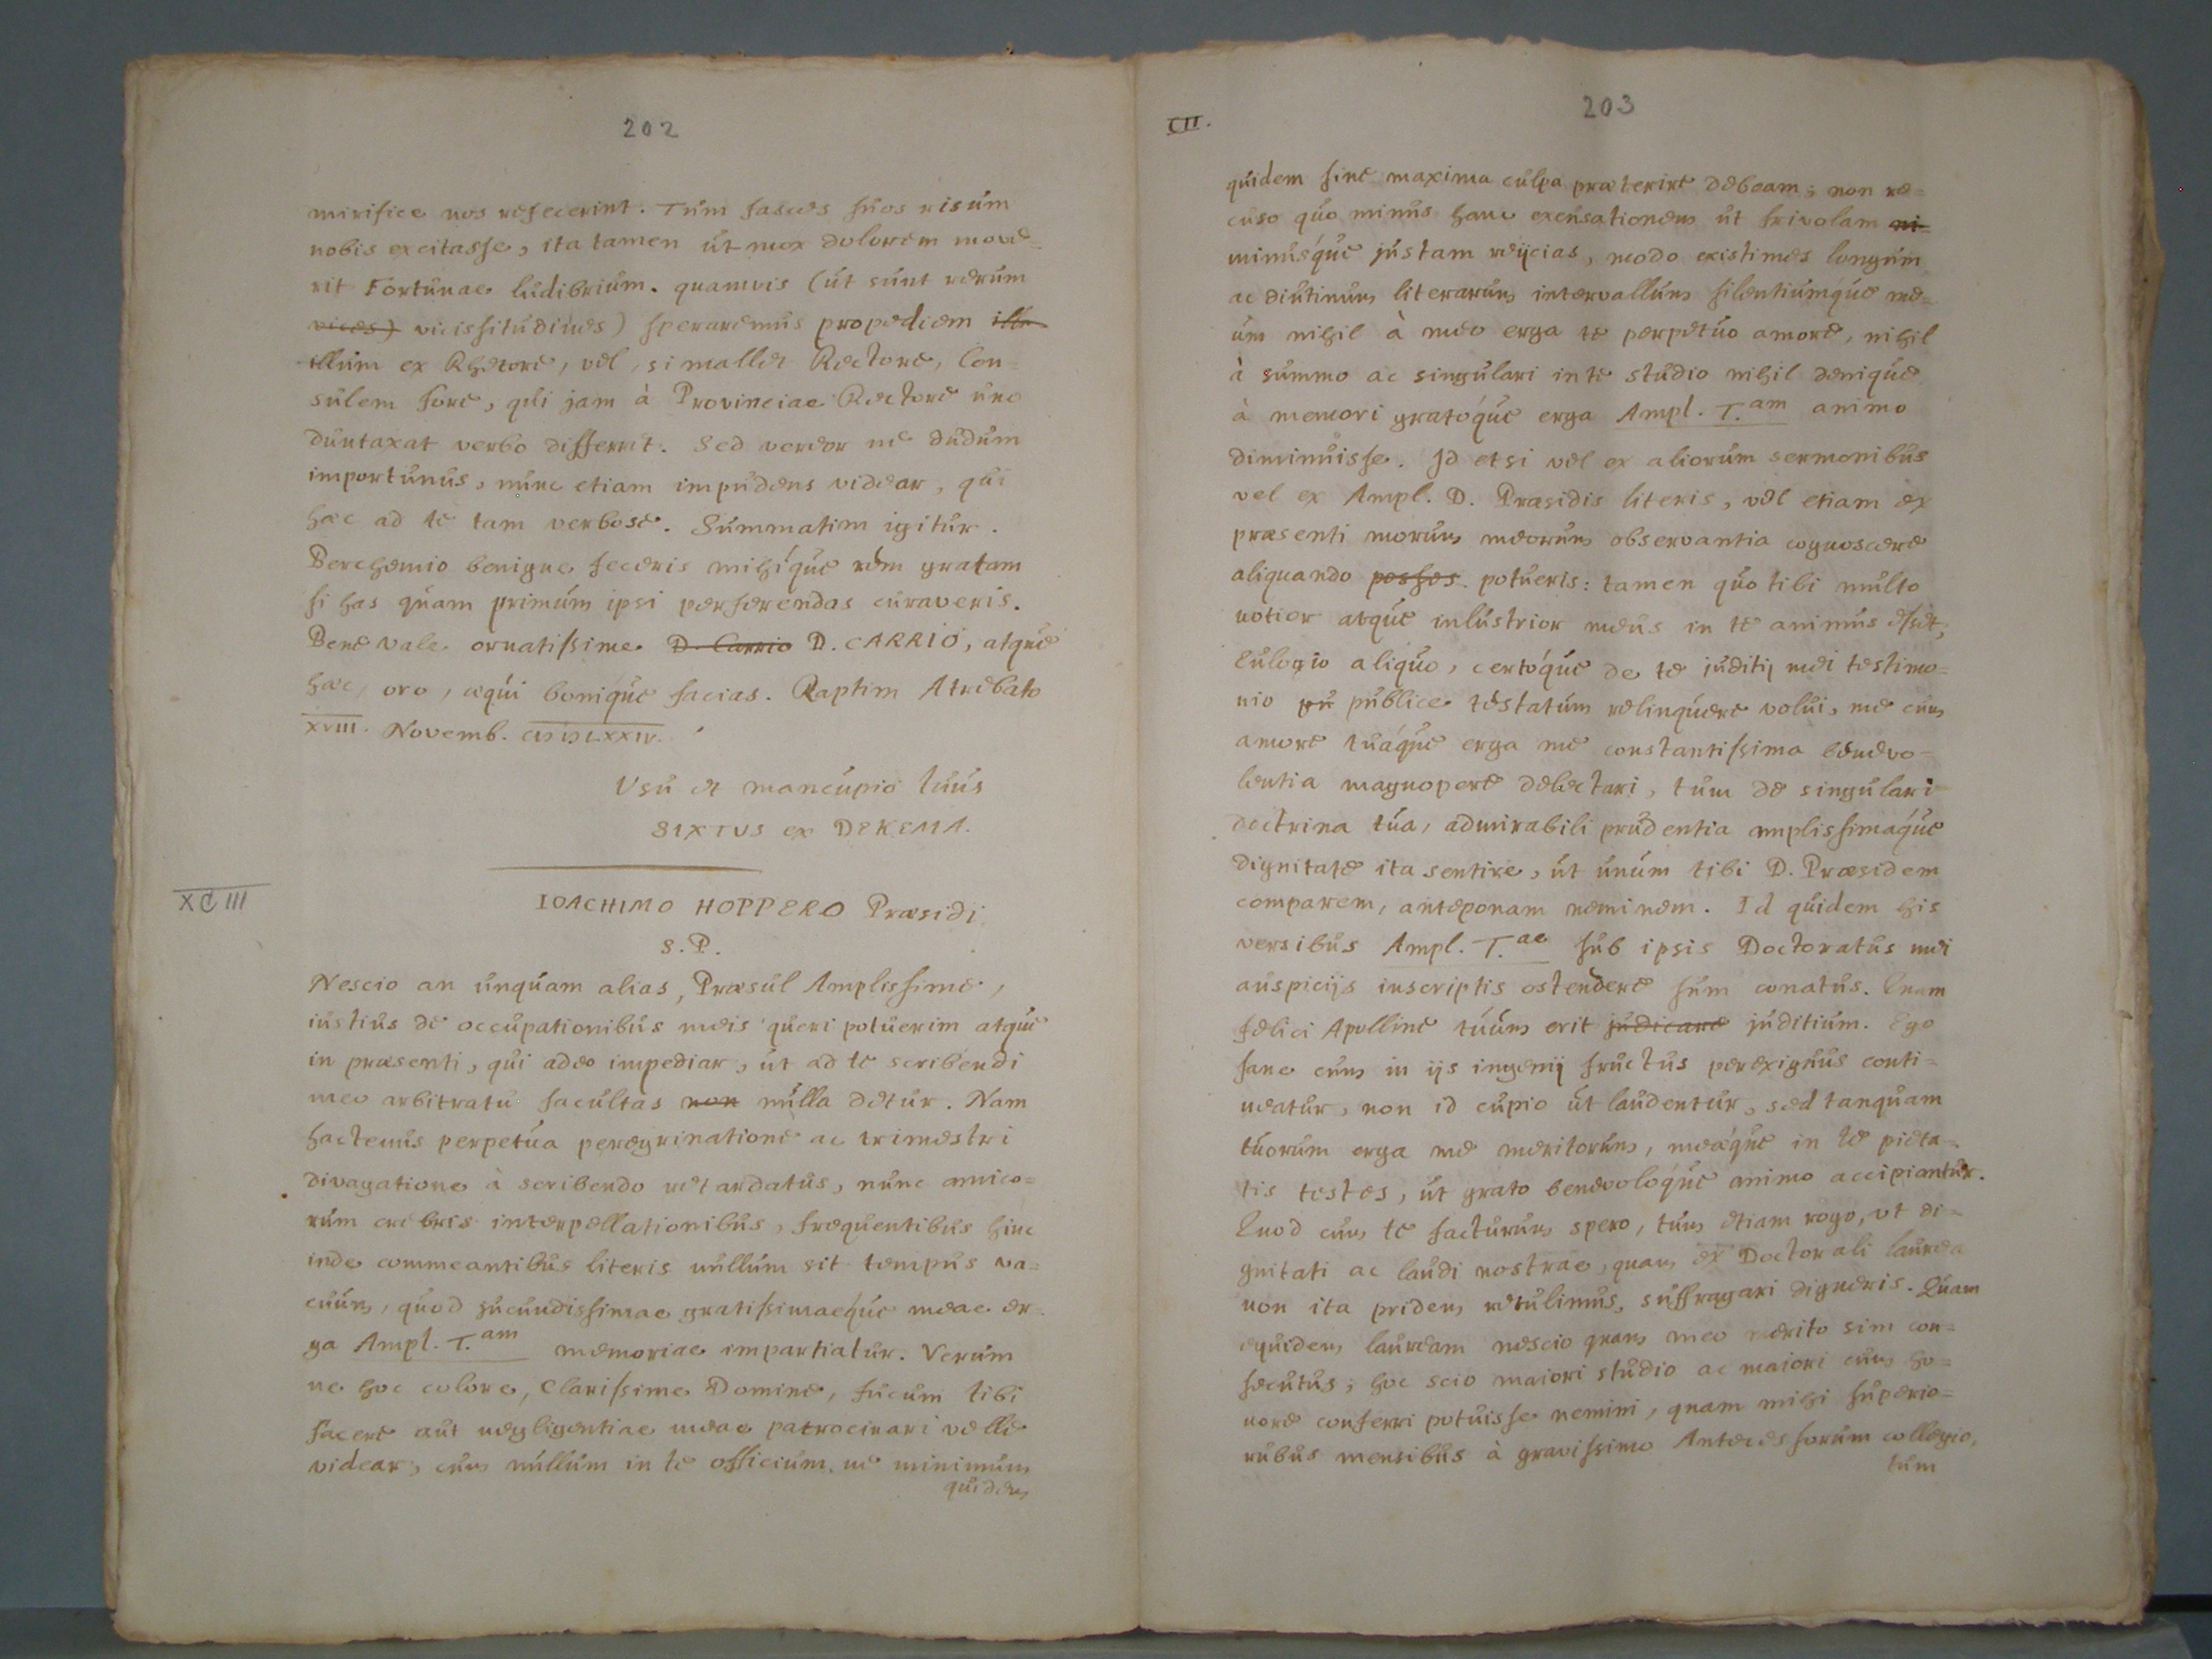 202
mirifice nos refecerint. Tum fasces suos risum
nobis excitasse, ita tamen ut mox dolorem move-
rit Fortunae ludibrium. quamvis (ut sunt rerum
vices) vicissitudines) speraremus propediem illu
illum ex Rhetore, vel, si mallet Rectore, Con-
sulem fore, qui jam à Provinciae Rectore uno
duntaxat verbo differret. Sed vereor ne dudum
importunus, nunc etiam impudens videar, qui
haec ad te tam verbose. Summatim igitur.
Berchemio benigne feceris mihíque rem gratam
si has quam primum ipsi perferendas curaveris.
Bene vale ornatissime D. Carrio D. CARRIO, atque
haec, oro, aequi boníque facias. Raptim Atrebato
XVIII. Novemb. CIƆ IƆ LXXIV.
Usu et mancupio tuus
SIXTUS ex DEKEMA.
XCIII
IOACHIMO HOPPERO Praesidi
S. P.
Nescio an unquam alias, Praesul Amplissime,
iustius de occupationibus meis queri potuerim atque
in praesenti, qui adeo impediar, ut ad te scribendi
meo arbitratu facultas non nulla detur. Nam
hactenus perpetua peregrinatione ac trimestri
divagatione à scribendo retardatus, nunc amico-
rum crebris interpellationibus, frequentibus hinc
inde commeantibus literis nullum sit tempus va-
cuum, quod jucundissimae gratissimaeque meae er-
ga Ampl. T.am memoriae impartiatur. Verum
ne hoc colore, Clarissime Domine, fucum tibi
facere aut negligentiae meae patrocinari velle
videar, cum nullum in te officium ne minimum
quidem
CII.
203
quidem sine maxima culpa praeterire debeam; non re-
cuso quo minus hanc excusationem ut frivolam ni-
minusque justam reijcias, modo existimes longum
ac diutinum literarum intervallum silentiumque me-
um nihil à meo erga te perpetuo amore, nihil
à summo ac singulari in te studio nihil denique
à memori gratóque erga Ampl. T.am animo
diminuisse. Id etsi vel ex aliorum sermonibus
vel ex Ampl. D. Praesidis literis, vel etiam ex
praesenti morum meorum observantia cognoscere
aliquando posses potueris: tamen quo tibi multo
notior atque inlustrior meus in te animus esset,
Eulogio aliquo, certóque de te juditij mei testimo-
nio pu publice testatum relinquere volui, me cum
amore tuáque erga me constantissima benevo-
lentia magnopere delectari, tum de singulari
doctrina tua, admirabili prudentia amplissimáque
dignitate ita sentire, ut unum tibi D. Praesidem
comparem, anteponam neminem. Id quidem his
versibus Ampl. T.ae sub ipsis Doctoratus mei
auspicijs inscriptis ostendere sum conatus. Quam
felici Apolline tuum erit judicare juditium. Ego
sane cum in ijs ingenij fructus perexiguus conti-
neatur, non id cupio ut laudentur, sed tanquam
tuorum erga me meritorum, meáque in te pieta-
tis testes, ut grato benevolóque animo accipiantur.
Quod cum te facturum spero, tum etiam rogo, ut di-
gnitati ac laudi nostrae, quam ex Doctorali laurea
non ita pridem retulimus, suffragari digneris. Quam
equidem lauream nescio quam meo merito sim con-
secutus; hoc scio maiori studio ac maiori cum ho-
nore conferri potuisse nemini, quam mihi superio-
rubus mensibus à gravissimo Antecessorum collegio,
tum